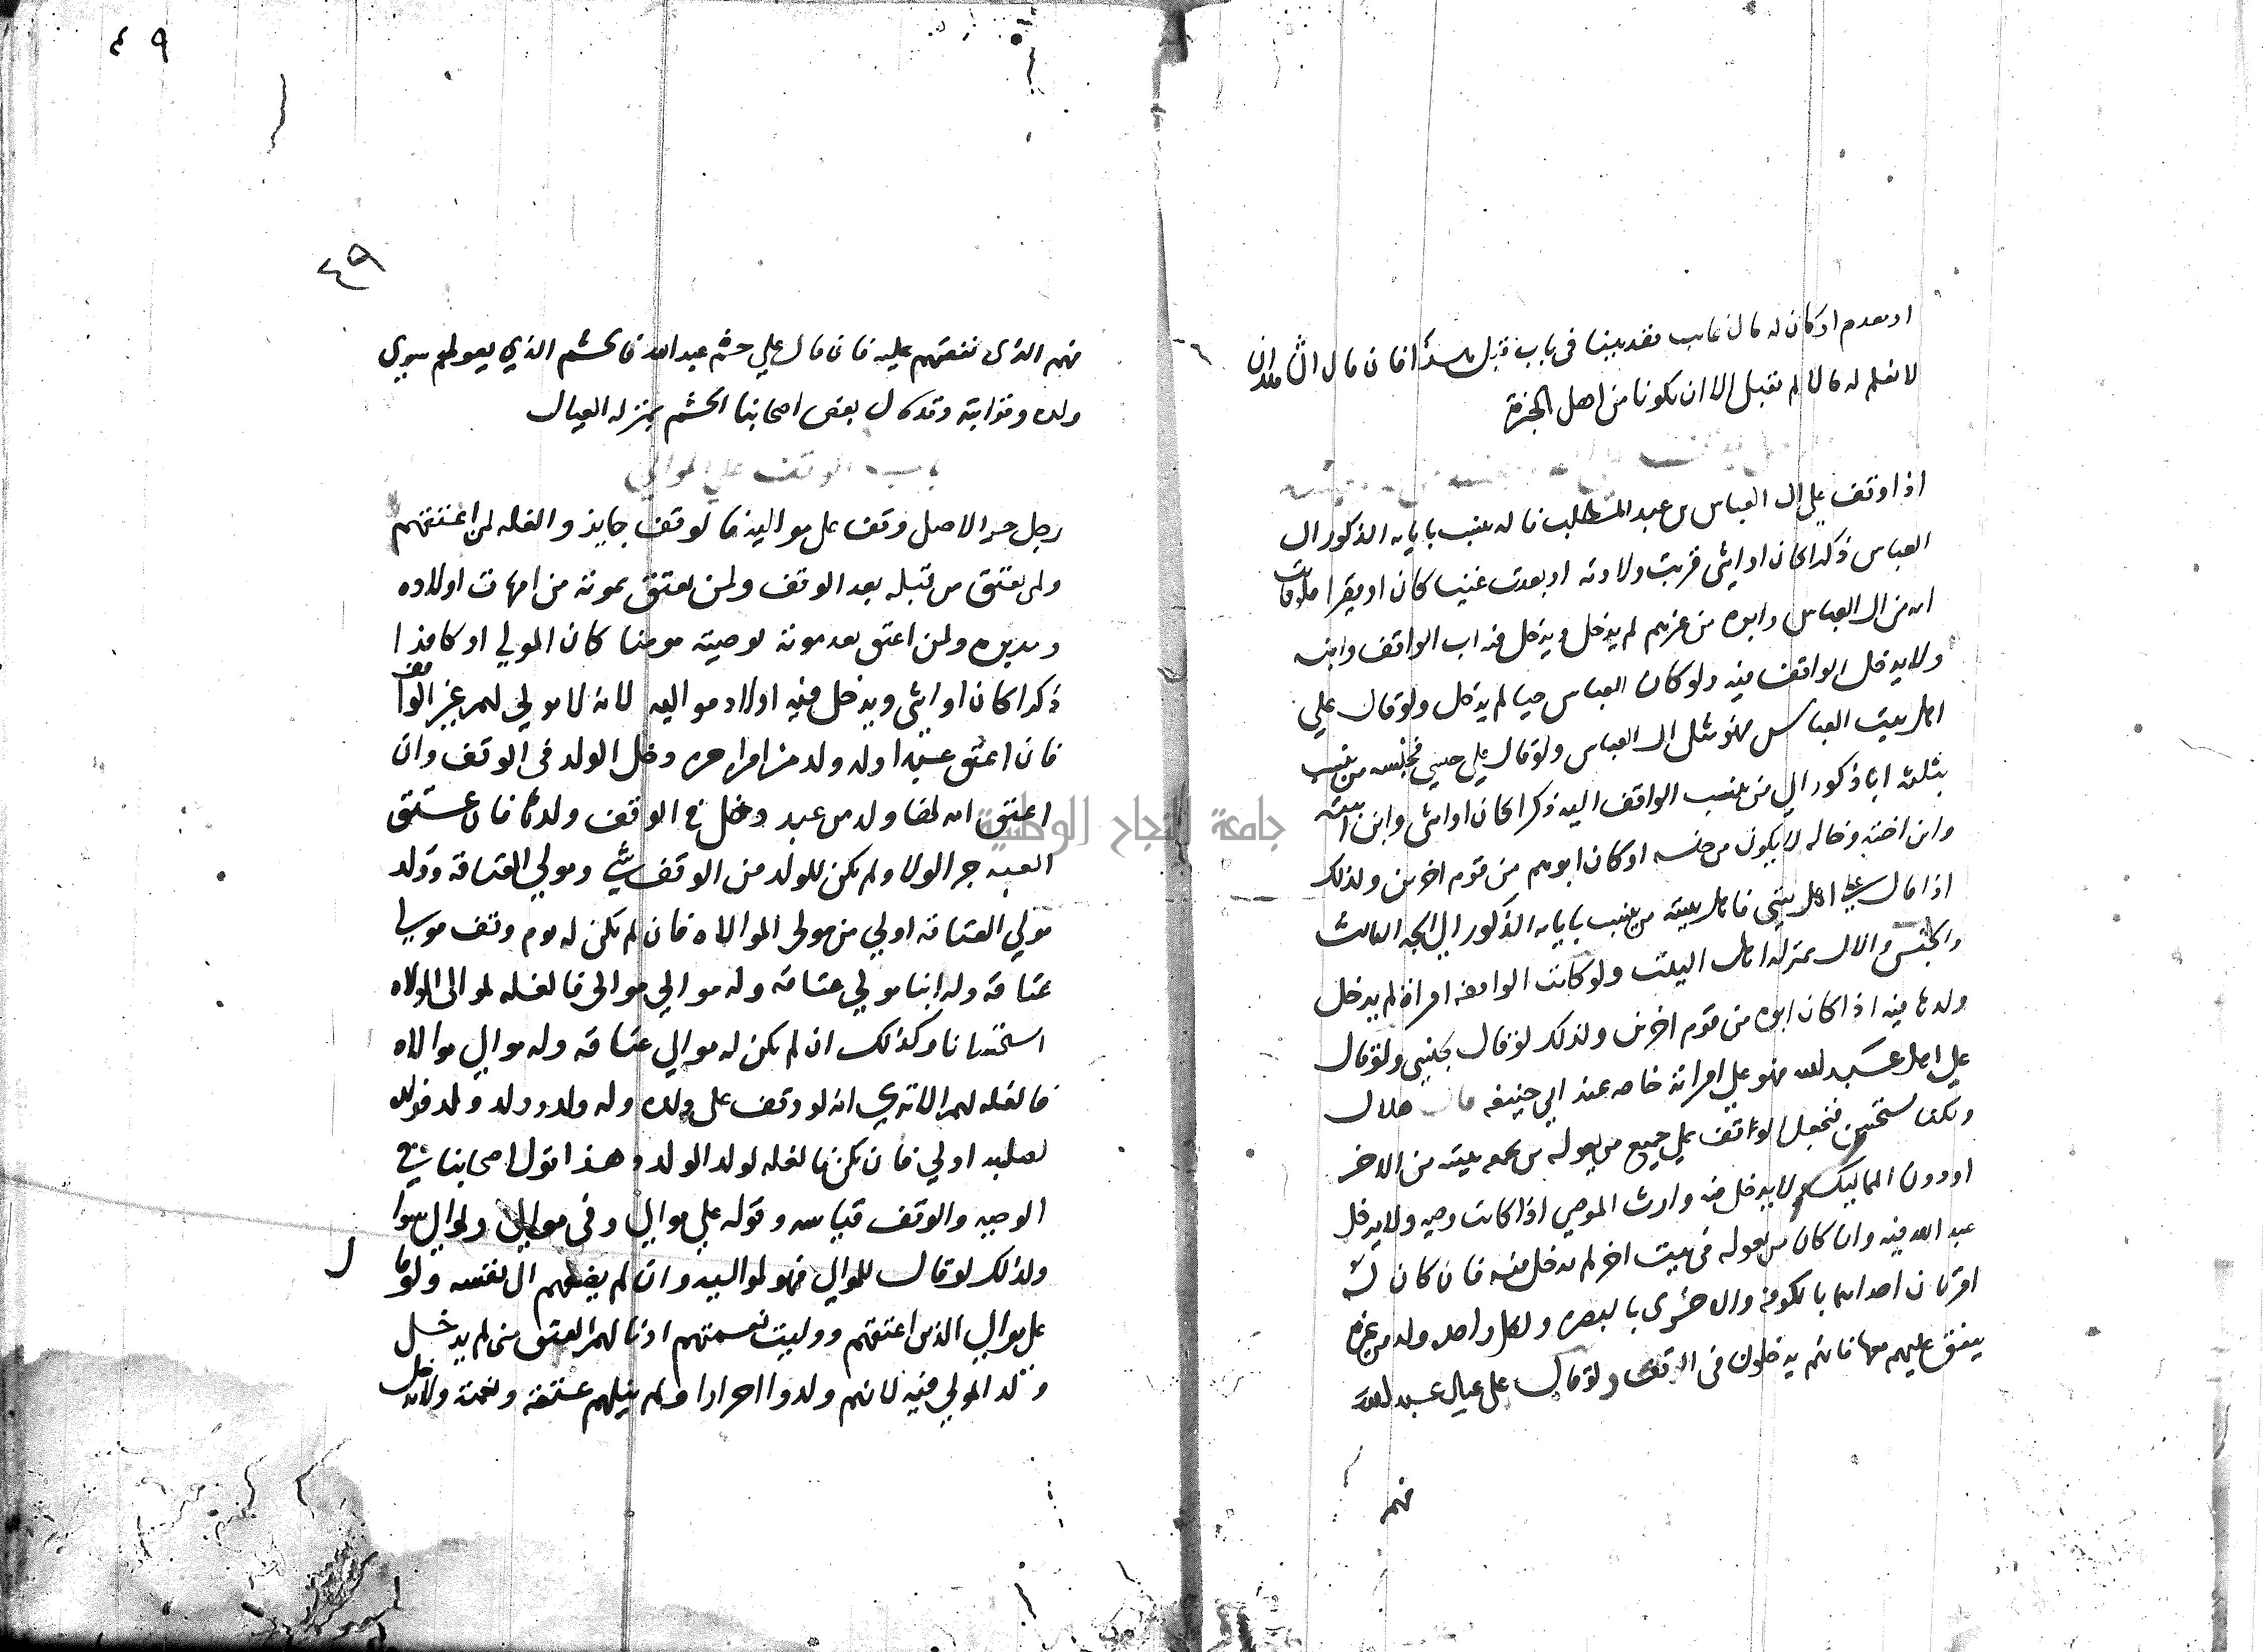 او بعدم او كان له مال غايب فقد بينا في باب قبل هذا فان قال اثنان
لا نعلم له مالا لم تقبل الا ان يكونا من اهل الخبرة
اذا وقف علي ال العباس بن عبد المطلب فا له ينسب بابايه الذكور الي
العباس ذكرا كان او انثي قربت ولادته او بعدت غنيا كان او فقيرا
امه من ال العباس وابوه من غيرهم لم يدخل ويدخل فيه اب الواقف وابنه
ولا يدخل الواقف فيه ولو كان العباس حيا لم يدخل ولو قال علي
اهل بيت العباس فهو مثل ال العباس ولو قال علي جنسي فجنسه من ينسب
بثلثة ابا ذكور الي من ينسب الواقف اليه ذكرا كان او انثي وابن ابنته
وابن اخته وخاله لا يكون من جنسه اذ كان ابوهم من قوم اخرين وكذلك
اذا قال علي اهل بيتي فاهل بيته من ينسب بابايه الذكور الي الجد الثالث
والجنس والال بمنزله اهل البيت ولو كانت الواقفه امراة لم يدخل
ولدها فيه اذا كان ابوه من قوم اخرين وكذلك لو قال بجنسي ولو قال
علي اهل عبد الله فهو علي امراته خاصه عند ابي حنيفه قال هلال
ولكنا نستحسن فنجعل الوقف علي جميع من يعوله من بيته من الاحر
ار دون المماليك ولا يدخل فيه وارث الموصي اذا كانت وصيه ولا يدخل
عبد الله فيه وان كان من يعوله في بيت اخر لم يدخل فيه فان كان له
امرتان احداهما بالكوفه والاخري بالبصره ولكل واحد ولد من غيره
ينفق عليهم معها فانهم يدخلون في الوقف ولو قال علي عيال عبد الله
فهم
٤٩
٤٩
فهم الذي نفقتهم عليه فان قال علي حشم عبد الله فالحشم الذي يعولهم سوي
ولده وقرابته وقد قال بعض اصحابنا الحشم بمنزله العيال
باب الوقف علي الموالي
رجل حر الاصل وقف علي مواليه فالوقف جايز والغله لمن اعتقهم
ولمن يعتق من قبله بعد الوقف ولمن يعتق بموته من امهات اولاده
ومدبره ولمن اعتق بعد موته لوصيته مومنا كان المولي او كافرا
ذكرا كان او انثي ويدخل فيه اولاد مواليه لانه لا مولي لهم غير الواقف
فان اعتق عبدا وله ولد من امراه حره دخل الولد في الوقف وان
اعتق امه لها ولد من عبد دخل في الوقف ولدها فان عتق
العبد جر الولا ولم يكن للولد من الوقف شي ومولي العتاقه وولد
مولي العتاقه اولي من مولي الموالاه فان لم يكن له يوم وقف موالي
عتاقه وله ابنا مولي عتاقه وله موالي موالي فالغله لموالي الموالاه
استحسانا وكذلك ان لم يكن له موالي عتاقه وله موالي موالاه
فالغله لهم الا تري انه لو وقف علي ولده وله ولد وولد ولد فولده
لصلبه اولي فان لم يكن فالغله لولد الولد وهذا قول اصحابنا في
الوصيه والوقف قياسه وقوله علي موالي وفي موالي ولموالي سوا
وكذلك لو قال للموالي فهو لمواليه وان لم يضفهم الي نفسه ولو قال
علي موالي الذين اعتقتهم ووليت نعمتهم او نالهم العتق مني لم يدخل
ولد المولي فيه لانهم ولدوا احرارا ولم ينلهم عتقه ونعمته ولا يدخل
جامعة النجاح الوطنية